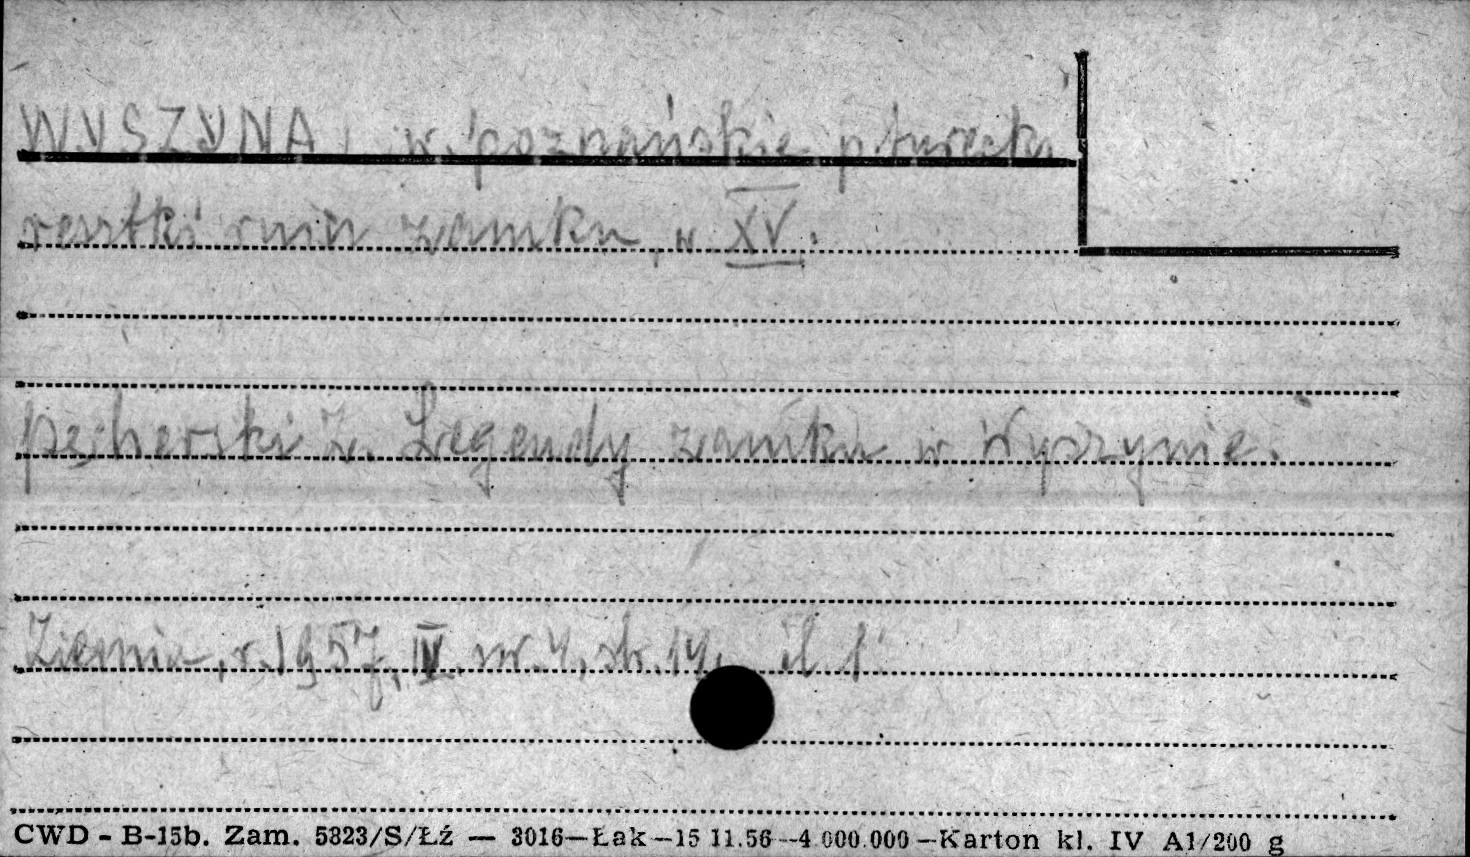 WYSZYNA, w. poznańskie p turecki
resztki ruin zamku, w XV.
pęcherski Z. Legendy zamku w Wyszynie.
Ziemia, r. 1957, IV. nr. 4, str. 14, il 1.
CWD - B-15b. Zam. 5823/S/Łź — 3016—Łak—15 11.56—4 000.000—Karton kl. IV A1/200 g